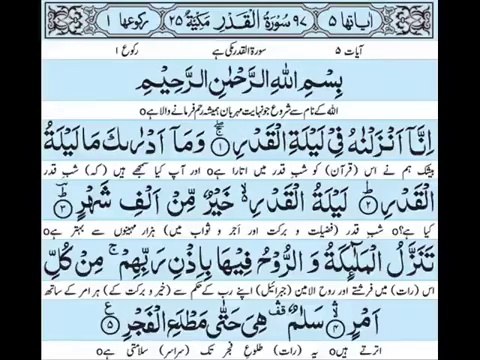 اٰیاتہا ۵ ۹۷ سُوْرَۃُ الْقَدْرِ مَکِّیَّۃٌ ۲۵ رکوعہا ۱
آیات ۵ سورۃ القدر مکی ہے رکوع ۱
بِسْمِ اللّٰهِ الرَّحْمٰنِ الرَّحِیْمِ
اللہ کے نام سے شروع جو نہایت مہربان ہمیشہ رحم فرمانے والا ہے o
اِنَّاۤ اَنْزَلْنٰهُ فِیْ لَیْلَةِ الْقَدْرِ ۚۖ﴿۱﴾ وَ مَاۤ اَدْرٰىكَ مَا لَیْلَةُ
بیشک ہم نے اس (قرآن) کو شبِ قدر میں اتارا ہے o اور آپ کیا سمجھے ہیں (کہ) شبِ قدر
الْقَدْرِ ؕ﴿۲﴾ لَیْلَةُ الْقَدْرِ ۙ۬ خَیْرٌ مِّنْ اَلْفِ شَهْرٍ ؕؔ﴿۳﴾
کیا ہے؟ o شبِ قدر (فضیلت و برکت اور اَجر و ثواب میں) ہزار مہینوں سے بہتر ہے o
تَنَزَّلُ الْمَلٰٓىِٕكَةُ وَ الرُّوْحُ فِیْهَا بِاِذْنِ رَبِّهِمْ ۚ مِنْ كُلِّ
اس (رات) میں فرشتے اور روح الامین (جبرائیل) اپنے رب کے حکم سے (خیر و برکت کے) ہر امر کے ساتھ
اَمْرٍ ۙۛ﴿۴﴾ سَلٰمٌ ۛ۫ هِیَ حَتّٰى مَطْلَعِ الْفَجْرِ ﴿۵﴾
اترتے ہیں o یہ (رات) طلوعِ فجر تک (سراسر) سلامتی ہے o